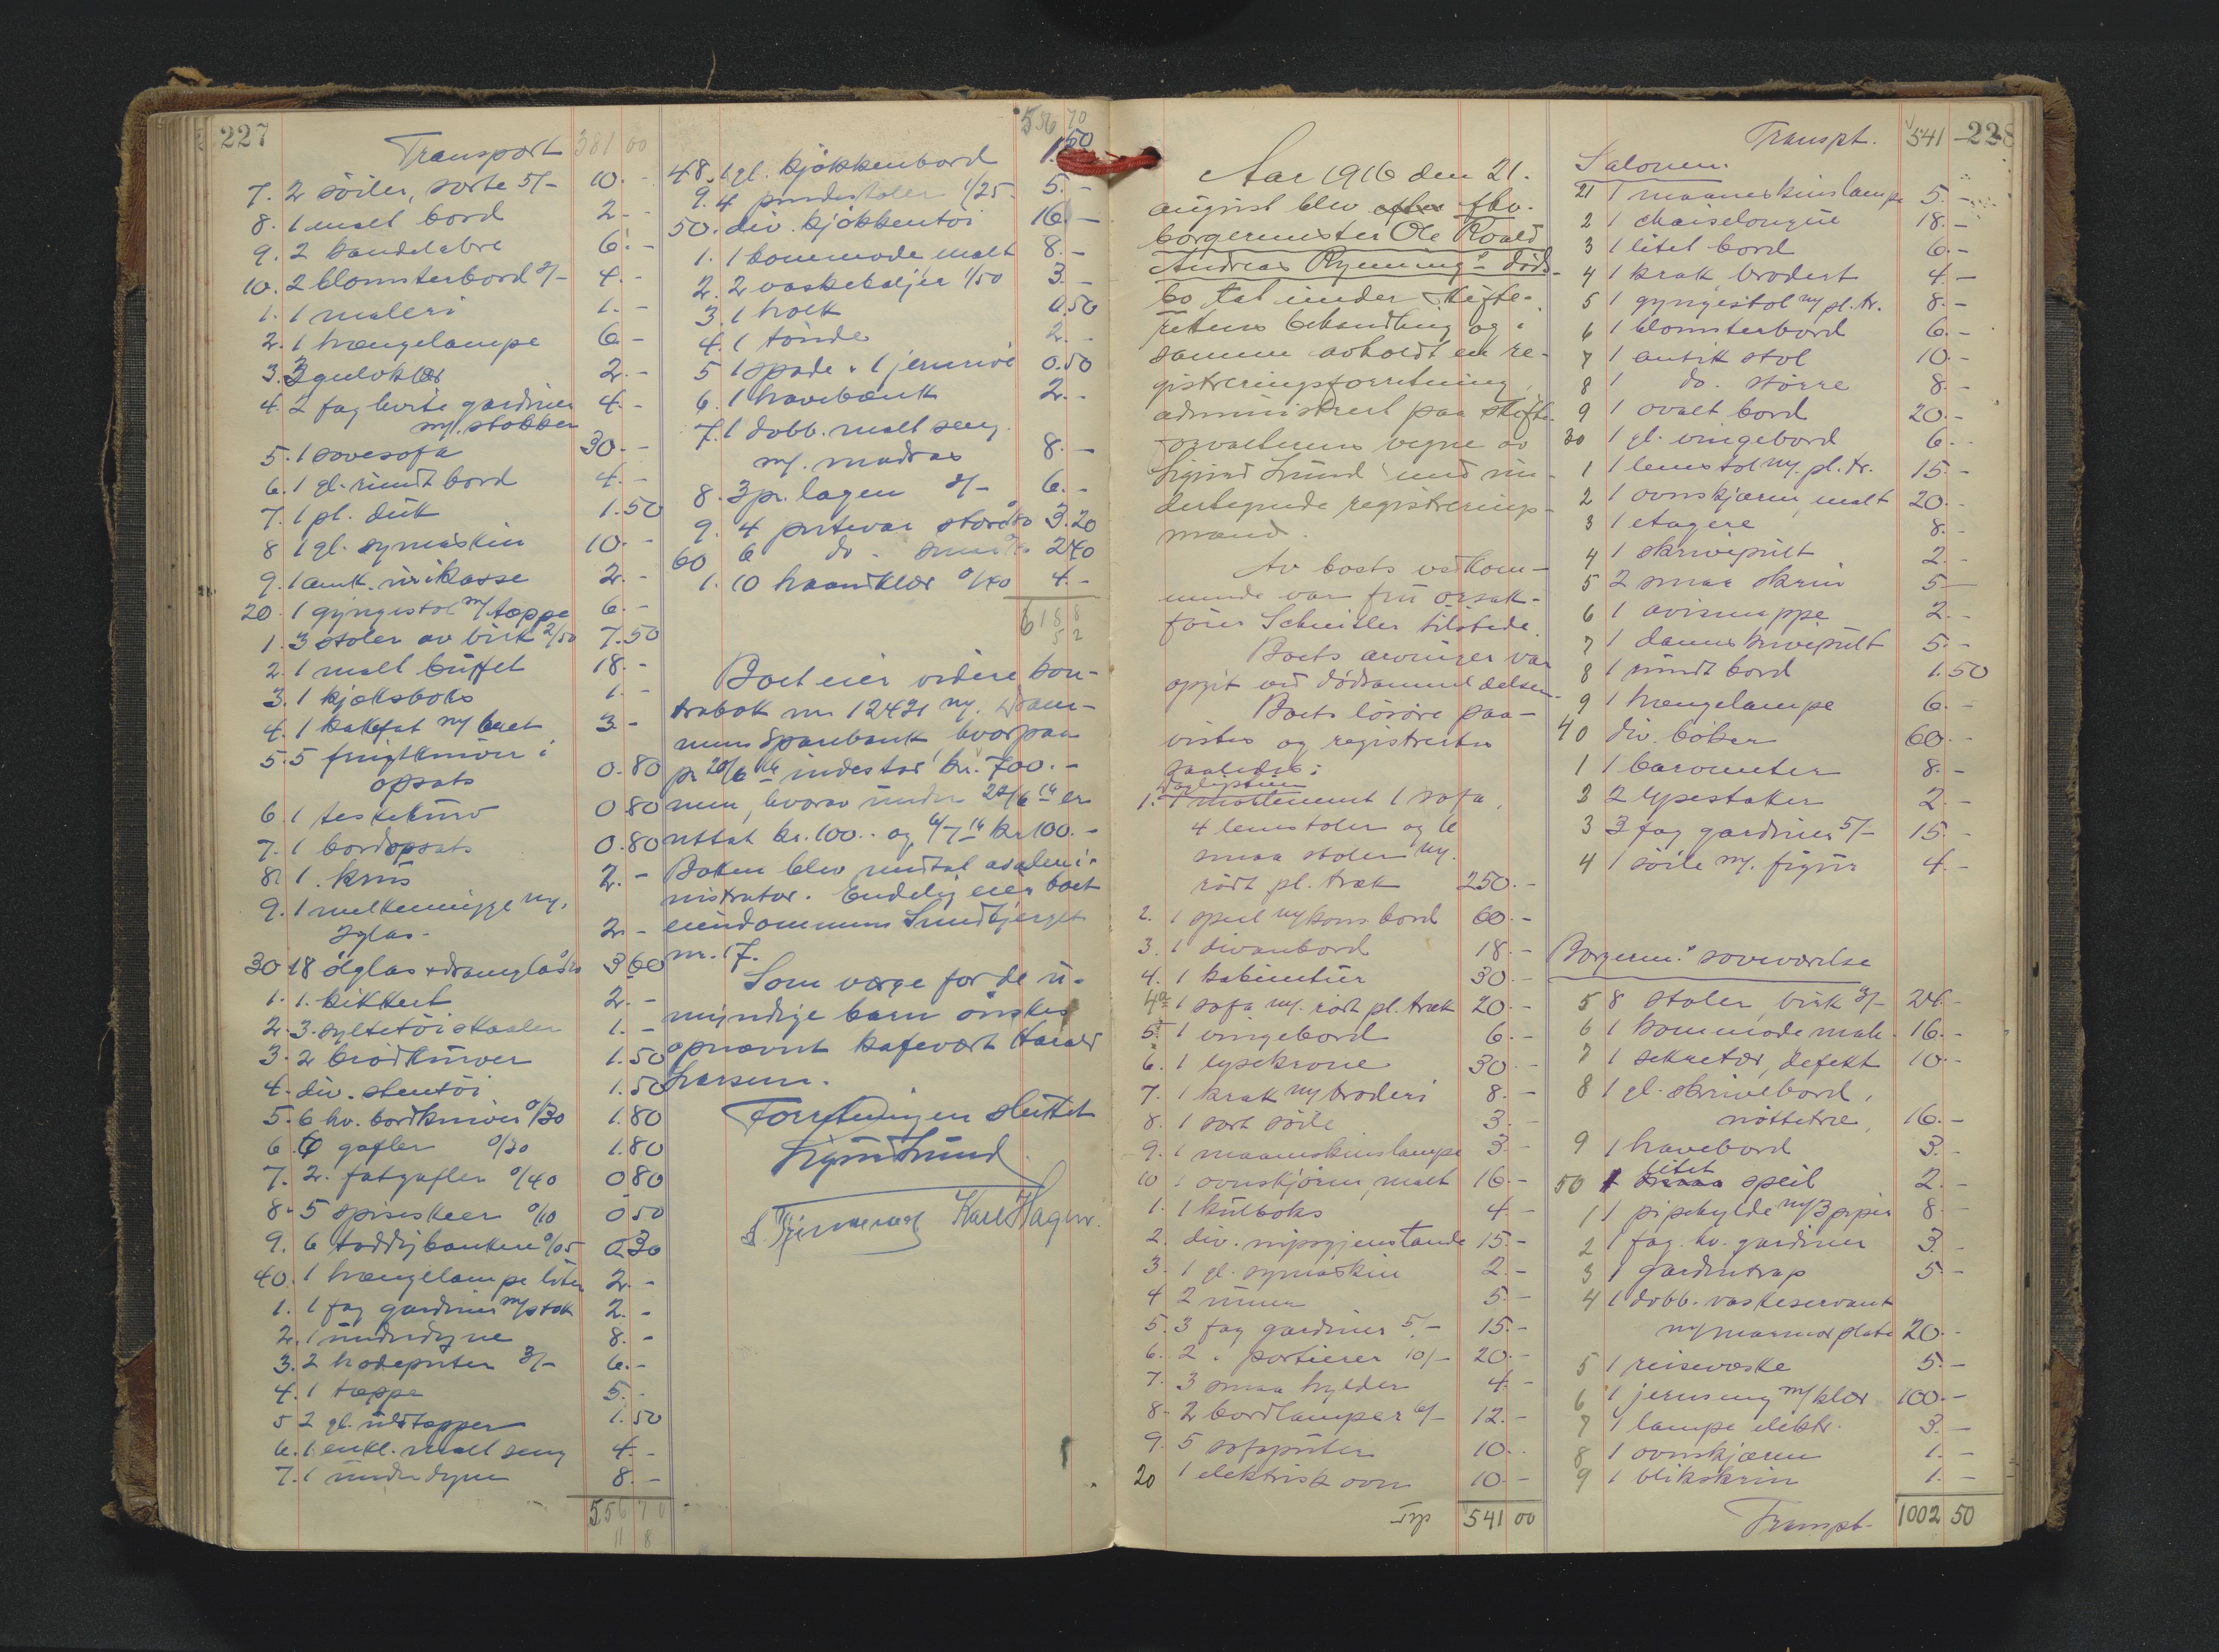 227
Transport 381 00
7. 2 söiler, sorte 5/- 10.-
8. 1 malt bord 2.-
9. 2 kandelabre 6.-
10. 2 blomsterbord 2/- 4.-
1. 1 maleri 1.-
2. 1 hængelampe 6.-
3. 3 gulvklær 2.-
4. 2 fag hvite gardiner 4.-
m/. stokker
5. 1 sovesofa 30.-
6. 1 gl. rundt bord 4.-
7. 1 pl. duk 1.50
8 1 gl. symaskin 10.-
9. 1 amk. urikasse 2.-
20. 1 gyngestol m/ tæppe 6.-
1. 3 stoler av birk 2/50 7.50
2. 1 malt buffet 18.-
3. 1 kjeksboks 1.-
4. 1 kakefat m/ 3.-
5. 5 frugtkniver i 0.80
opsats
6. 1 teskekurv 0.80
7. 1 bordopsats 0.80
8. 1 krus 2.-
9. 1 melkemugge m/.
3 glas 2.-
30 18 ölglas + dramglas 3.60
1. 1. kikkert 2.-
2. 3. syltetöiskaaler 1.-
3. 2 brödkurver 1.50
4. div. stentöi 1.50
5. 6 hv. bordkniver 0/30 1.80
6. 6 gafler 0/30 1.80
7. 2. fatgafler 0/40 0.80
8. 5 spiseskeer 0/10 0.50
9. 6 toddy 0/05 0.30
40. 1 hængelampe liten 2.-
1. 1 fag gardiner m/ stok 2.-
2. 1 underdyne 8.-
3. 2 hodeputer 3/- 6.-
4. 1 tæppe 5.-
5 2 gl. uldtæpper 1.50
6. 1 enkl. malt seng 4.-
7. 1 underdyne 8.-
556 70
11 8
556 70
48. 1 gl. kjökkenbord 1.50
9. 4 pindestoler 1/25 5.-
50. div. kjökkentöi 16.-
1. 1 kommode, malt 8.-
2. 2 vaskebaljer 1/50 3.-
3. 1 holk 0.50
4. 1 tönde 2.-
5 1 spade + 1 jernrive 0.50
6. 1 havebænk 2.-
7. 1 dobb. malt seng
m/. madras 8.-
8. 3 pr. lagen 2/- 6.-
9. 4 putevar store 0/80 3.20
60 6 do. smaa 2.40
1. 10 haandklær 0/40 4.-
618 8
5 2
Boet eier videre kon-
trabok nr 12421 m/. Dram-
mens Sparebank, hvorpaa
pr 20/6 16 indestod kr. 700.-
men, hvorav under 24/6 16 er
uttat kr. 100.- og 6/7 16 kr 100.-
Boken blev mottat av admi-
nistrator. Endelig eier boet
eiendommen Sundbjerget
nr. 17.
Som værge for de u-
myndige barn önskes
opnævnt kafevært Harald
Larsen.
Forretningen sluttet
Sigurd Lund
Karl Hagen.
228
Aar 1916 den 21.
august blev efter fhv.
borgermester Ole Roald
Andreas Rynning's döds-
bo tat under skifte-
rettens behandling og i
samme avholdt en re-
gistreringsforretning,
administrert paa skifte-
forvalterens vegne av
Sigurd Lund med un-
dertegnede registrerings-
mænd.
Av boets vedkom-
mende var fru orsak-
förer Scheitler tilstede.
Boets arvinger var
opgit ved dödsanmeldelsen.
Boets lösöre paa-
vistes og registrertes
saaledes:
Dagligstuen
1. 1 möblement 1 sofa,
4 lenestoler og 6
smaa stoler m/.
rödt pl. træk 250.-
2. 1 speil m/ kons. bord 60.-
3. 1 divanbord 18.-
4. 1 kabinettur 30.-
4a 1 sofa m/. rödt pl. træk 20.-
5. 1 vingebord 6.-
6. 1 lysekrone 30.-
7. 1 krak m/ broderi 8.-
8. 1 sort söile 3.-
9. 1 maaneskinslampe 3.-
10 1 ovnskjærm, malt 16.-
1. 1 kulboks 4.-
2. div. nipsgjenstande 15.-
3. 1 gl. symaskin 2.-
4 2 urner 5.-
5. 3 fag gardiner 5/- 15.-
6. 2 " portierer 10/- 20.-
7. 3 smaa hylder 4.-
8. 2 bordlamper 6/- 12.-
9. 5 sofaputer 10.-
20 1 elektrisk ovn 10.-
Trp 541 00
Transpt. 541 -
Salonen.
21 1 maaneskinslampe 5.-
2 1 chaiselongue 18.-
3 1 litet bord 6.-
4 1 krak, brodert 4.-
5 1 gyngestol m/ pl. tr. 8.-
6 1 blomsterbord 6.-
7 1 antik stol 10.-
8 1 do. större 8.-
9 1 ovalt bord 20.-
30 1 gl. vingebord 6.-
1 1 lenestol m/. pl. tr. 15.-
2 1 ovnskjærm, malt 20.-
3 1 etagere 8.-
4 1 skrivepult 2.-
5 2 smaa skrin 5-
6 1 avismappe 2.-
7 1 dameskrivepult 5.-
8 1 rundt bord 1.50
9 1 hængelampe 6.-
40 div. böker 60.-
1 1 barometer 8.-
2 2 lysestaker 2.-
3 3 fag gardiner 5/- 15.-
4 1 söile m/. figur 4.-
Borgerm.s soveværelse
5 8 stoler, birk 3/- 24.-
6 1 kommode malt. 16.-
7 1 sekretær, defekt 10.-
8 1 gl. skrivebord,
nöttetræ, 16.-
9 1 havebord 3.-
50 1 litet speil 2.-
1 1 pipehylde m/ 3 piper 8.-
2 1 fag. hv. gardiner 3.-
3 1 gardintrap 5.-
4 1 dobb. vaskeservant
m/ marmorplate 20.-
5 1 reisevæske 5.-
6 1 jernseng m/ klær 100.-
7 1 lampe elektr. 3.-
8 1 ovnskjærm 1.-
9 1 blikskrin 1.-
Transpt. 1002 50